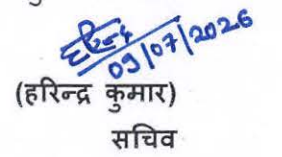 हरिन्द्र
09/07/2026
(हरिन्द्र कुमार)
सचिव